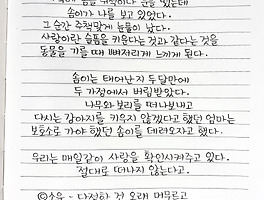 솜이가 나를 보고 있었다.
그 순간 주책맞게 눈물이 났다.
사랑이란 슬픔을 키운다는 것과 같다는 것을
동물을 기를 때 뼈저리게 느끼게 된다.
솜이는 태어난지 두달만에
두 가정에서 버림받았다.
나무와 보리를 떠나보내고
다시는 강아지를 키우지 않겠다고 했던 엄마는
보호소로 가야 했던 솜이를 데려오자고 했다.
우리는 매일같이 사랑을 확인시켜주고 있다.
절대로 떠나지 않는다고.
다정한 건 오래 머무르고